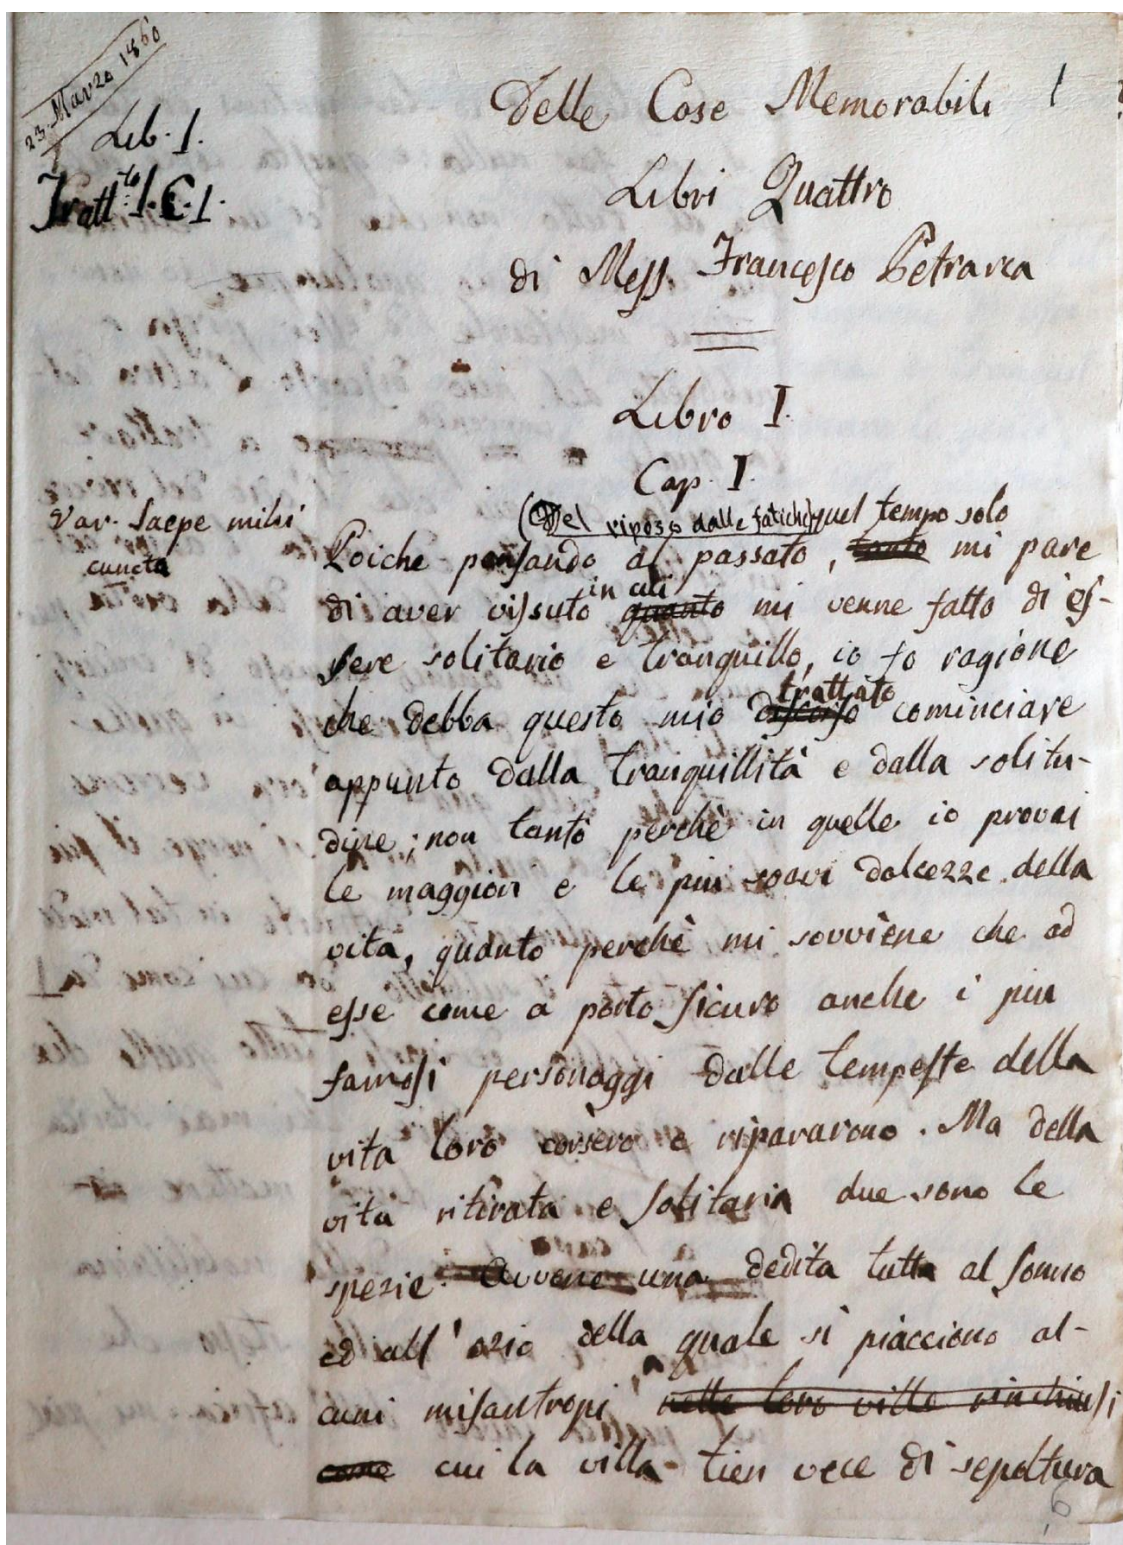 23. Marzo 1860
Lib. I.
Tratt.to I. C. I.
Delle Cose Memorabili
1
Libri Quattro
di Mess. Francesco Petrarca
Libro I.
Cap. I.
(Del riposo dalle fatiche) quel tempo solo
Var. Saepe mihi
cuncta
Poiche pensando al passato, tanto mi pare
in cui
di aver vissuto quanto mi venne fatto di es-
sere solitario e tranquillo, io fo ragione
trattato
che debba questo mio discorso cominciare
appunto dalla tranquillità e dalla solitu-
dine; non tanto perchè in quelle io provai
le maggiori e le piu soavi dolcezze della
vita, quanto perchè mi sovviene che ad
esse come a porto sicuro anche i piu
famosi personaggi dalle tempeste della
vita loro corsero e ripararono. Ma della
vita ritirata e solitaria due sono le
spezie. Avvene una dedita tutta al sonno
ed all'ozio della quale si piacciono al-
cuni misantropi nelle loro ville rinchiusi
come cui la villa tien vece di sepoltura